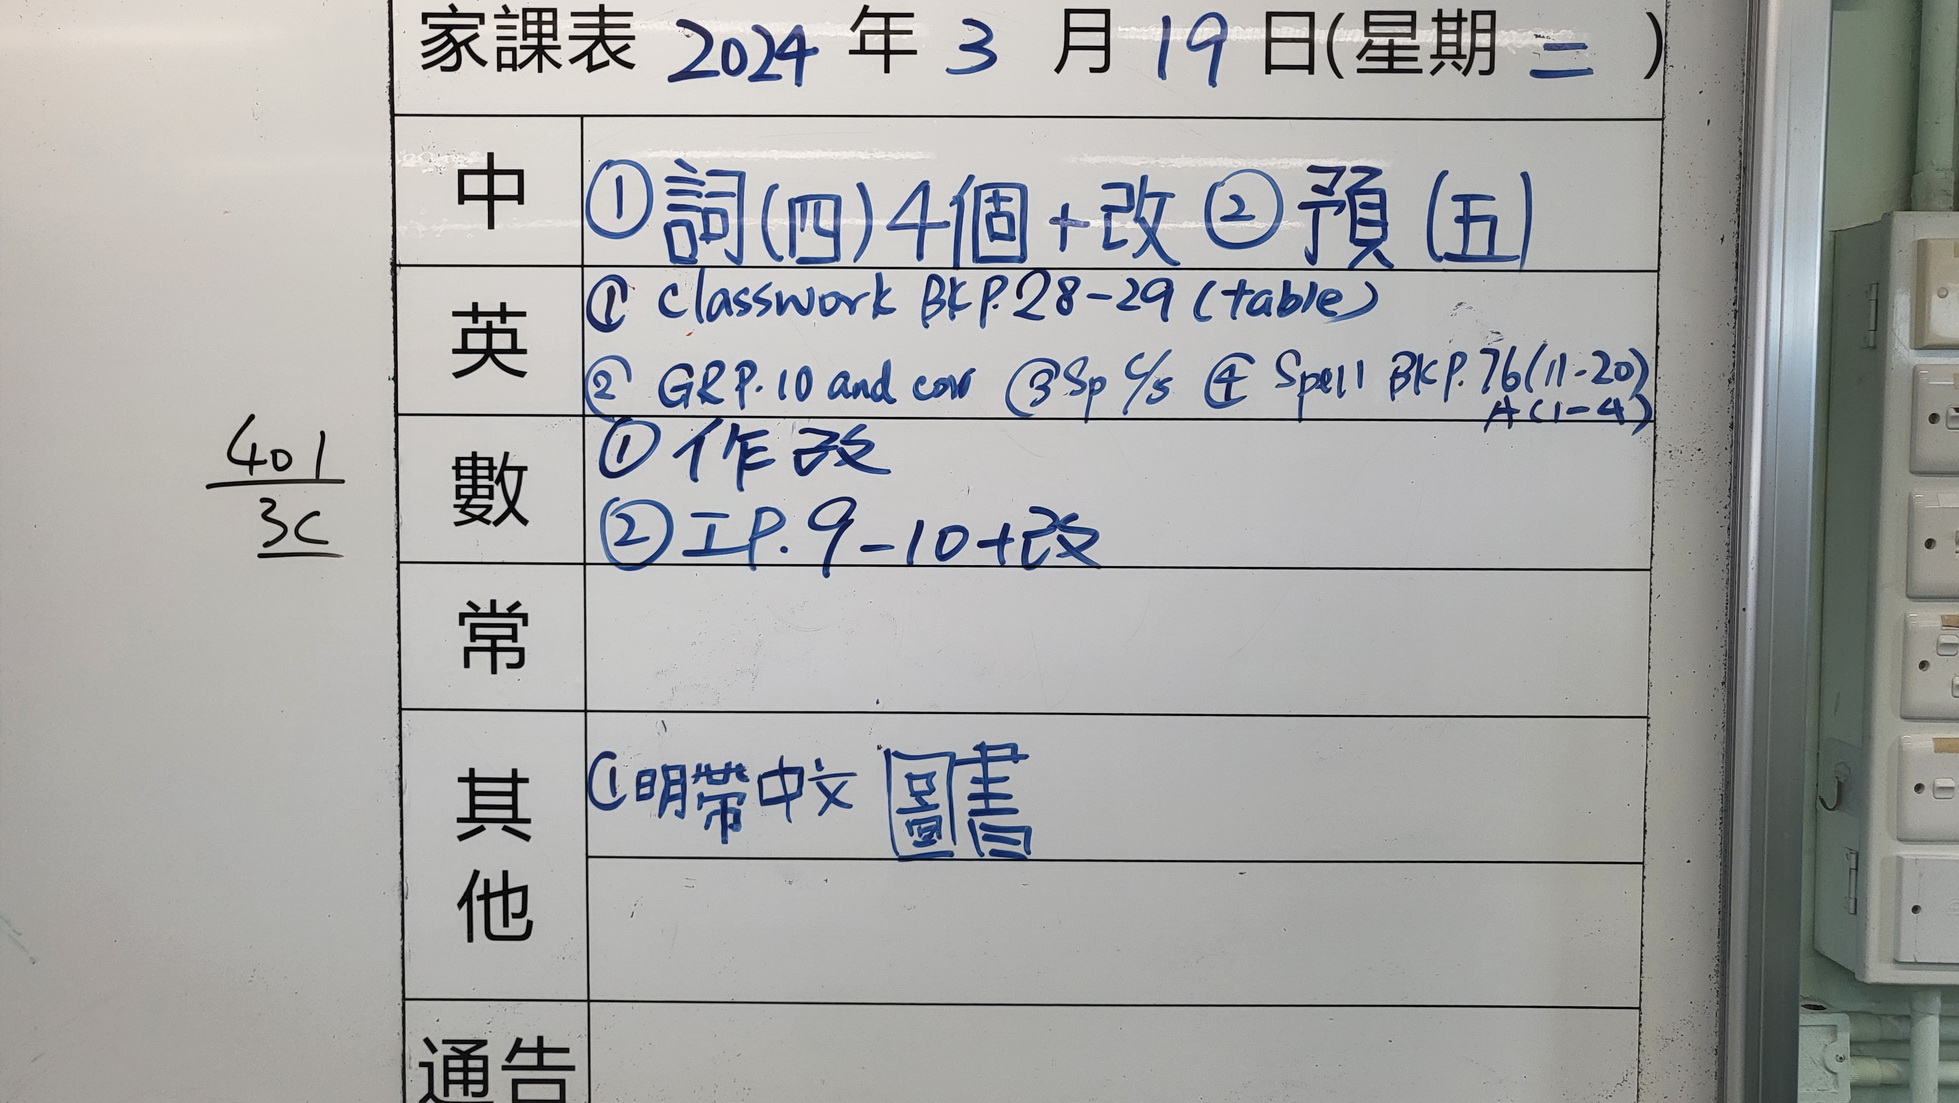 家課表 2024 年 3 月 19 日(星期 二 )
中 ①詞(四)4個+改 ②預(五)
英 ① Classwork BK P.28-29 (table)
② GR P.10 and corr ③ Sp C/S ④ Spell BK P.76(11-20)
A(1-4)
數 ① 作改
② 工P.9-10+改
401
3C
常
其他 ①明帶中文圖書
通告